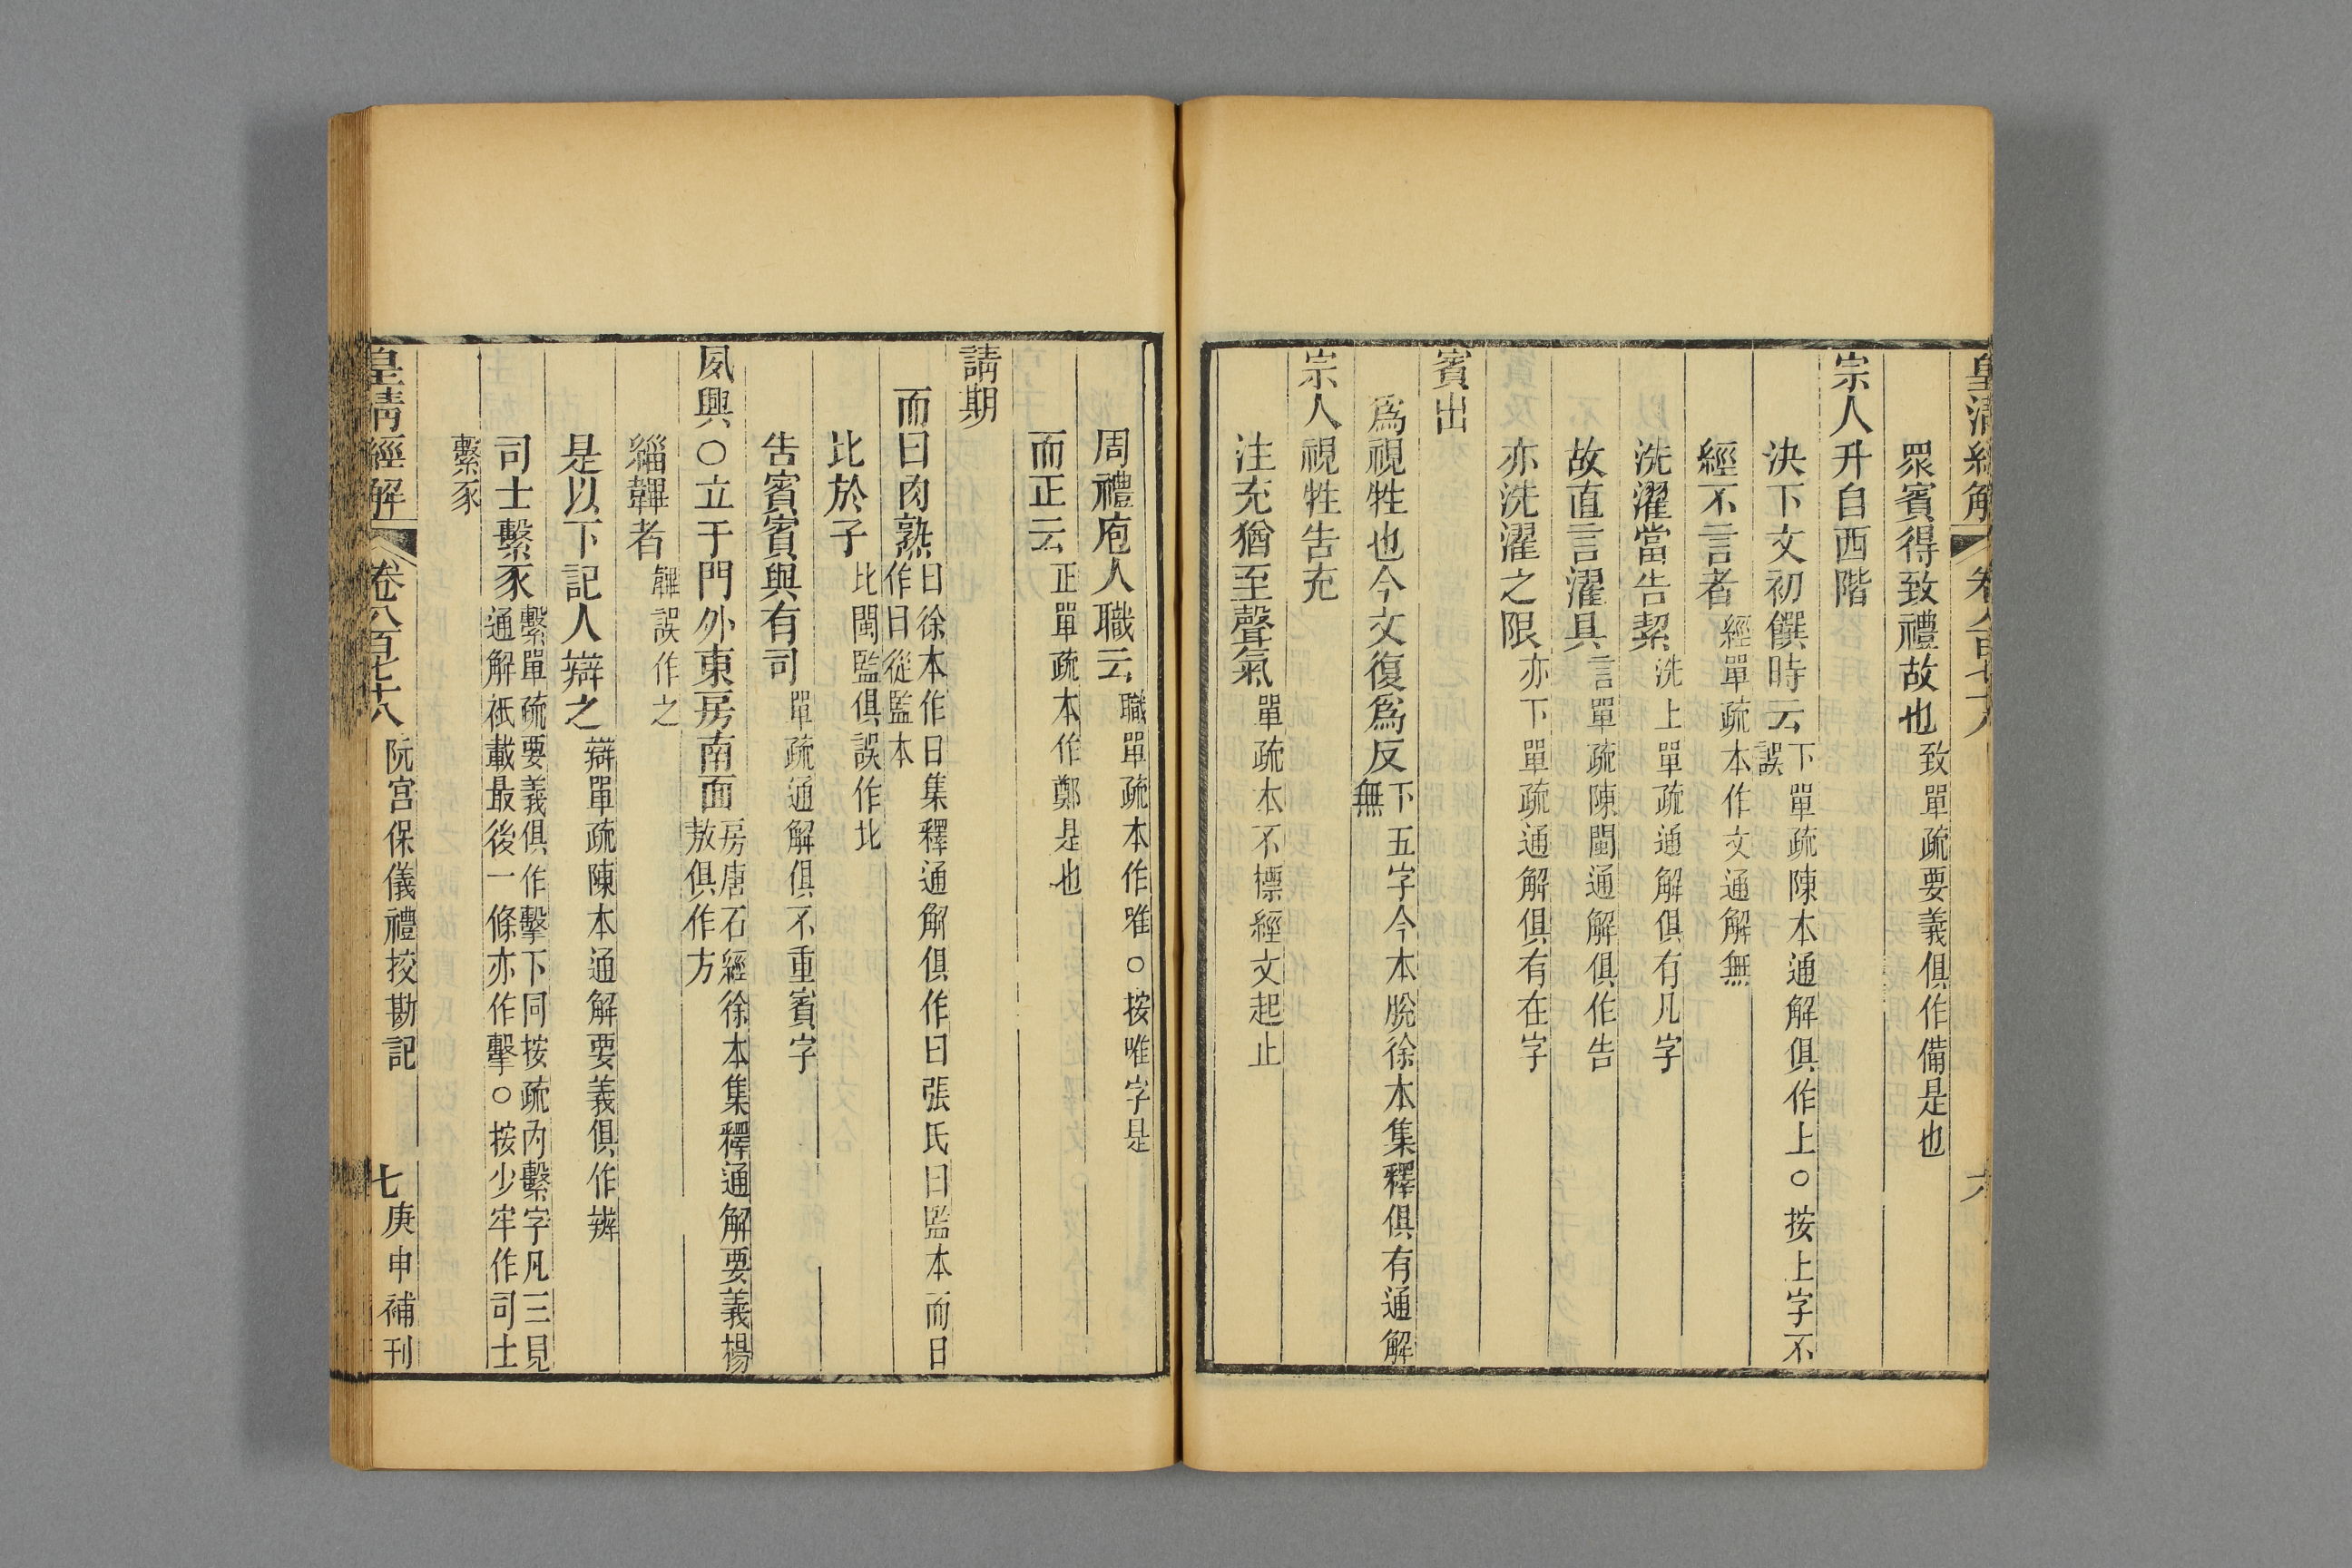 皇清經解 卷八百七十八 六
眾賓得致禮故也 致單疏要義俱作備是也
宗人升自西階
決下文初饌時云 下單疏陳本通解俱作上○按上字不誤
經不言者 經單疏本作文通解無
洗濯當告絜 洗上單疏通解俱有凡字
故直言濯具 言單疏陳閩通解俱作告
亦洗濯之限 亦下單疏通解俱有在字
賓出
爲視牲也今文復爲反 下五字今本脫徐本集釋俱有通解無
宗人視牲告充
注充猶至聲氣 單疏本不標經文起止
周禮庖人職云 職單疏本作唯○按唯字是
而正云 正單疏本作鄭是也
請期
而曰肉熟 曰徐本作日集釋通解俱作曰張氏曰監本而日作曰從監本
比於子 比閩監俱誤作北
告賓賓與有司 單疏通解俱不重賓字
夙興○立于門外東房南面 房唐石經徐本集釋通解要義楊敖俱作方
緇韠者 韠誤作之
是以下記人辯之 辯單疏陳本通解要義俱作辨
司士繫豕 繫單疏要義俱作擊下同按疏內繫字凡三見通解祇載最後一條亦作擊○按少牢作司士
繫豕
皇清經解 卷八百七十八 阮宮保儀禮挍勘記 七 庚申補刊